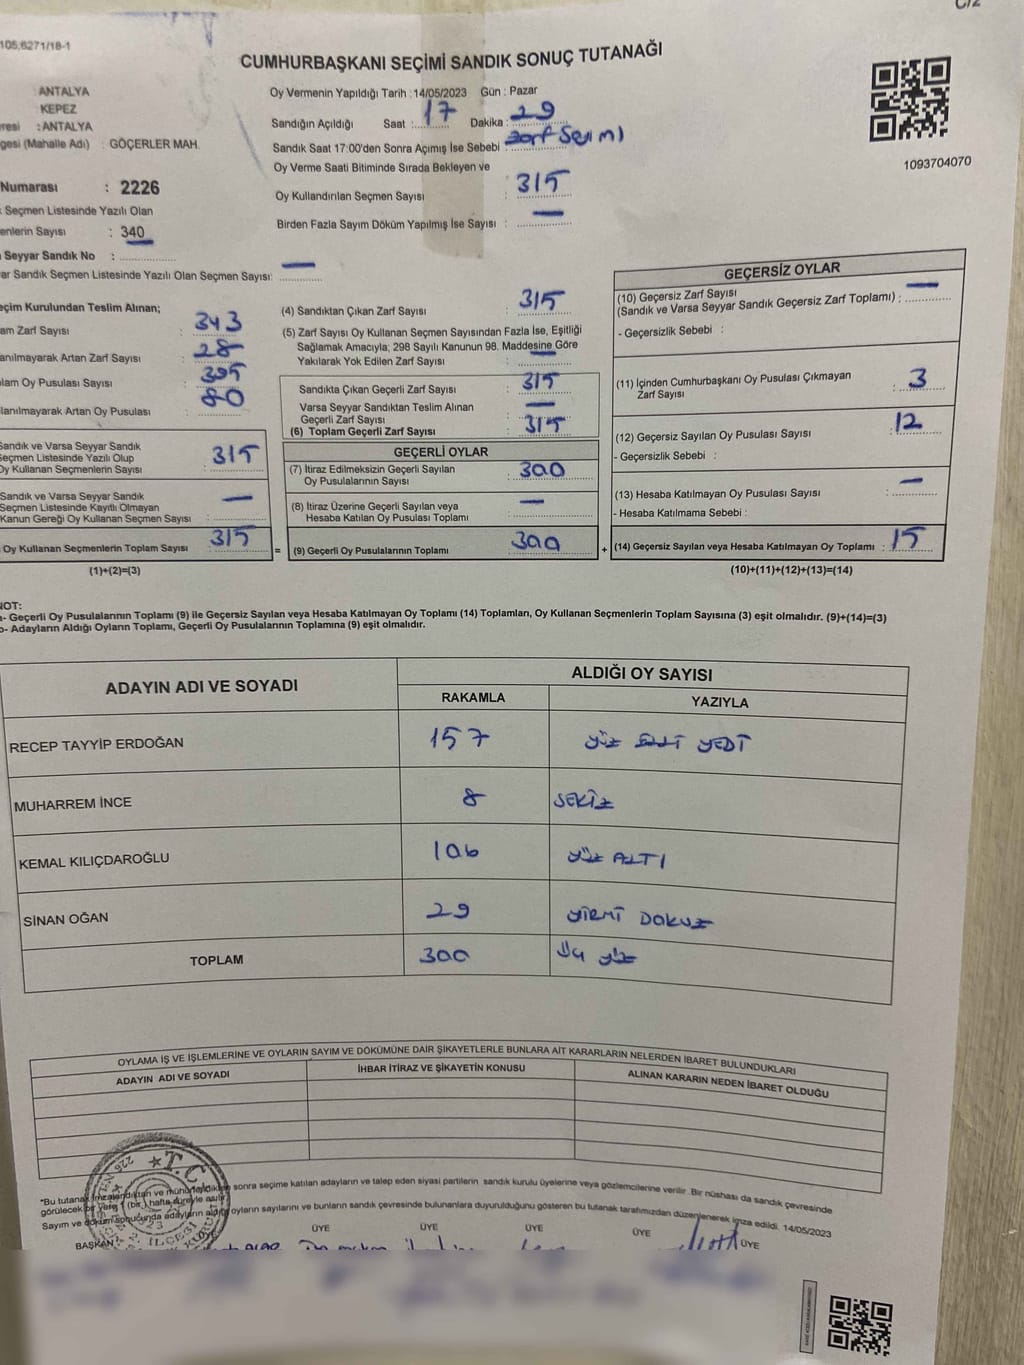 105,6271/18-1
C/2
CUMHURBAŞKANI SEÇİMİ SANDIK SONUÇ TUTANAĞI
: ANTALYA
: KEPEZ
resi : ANTALYA
gesi (Mahalle Adı) : GÖÇERLER MAH.
Numarası : 2226
Seçmen Listesinde Yazılı Olan
enlerin Sayısı : 340
Seyyar Sandık No :
ar Sandık Seçmen Listesinde Yazılı Olan Seçmen Sayısı: —
Oy Vermenin Yapıldığı Tarih : 14/05/2023 Gün : Pazar
Sandığın Açıldığı Saat : 17 Dakika : 29
Sandık Saat 17:00'den Sonra Açımış İse Sebebi : zarf
Oy Verme Saati Bitiminde Sırada Bekleyen ve
Oy Kullandırılan Seçmen Sayısı : 315
Birden Fazla Sayım Döküm Yapılmış İse Sayısı : —
1093704070
eçim Kurulundan Teslim Alınan;
am Zarf Sayısı : 343
anılmayarak Artan Zarf Sayısı : 28
lam Oy Pusulası Sayısı : 395
lanılmayarak Artan Oy Pusulası : 80
Sandık ve Varsa Seyyar Sandık
Seçmen Listesinde Yazılı Olup
Oy Kullanan Seçmenlerin Sayısı : 315
Sandık ve Varsa Seyyar Sandık
Seçmen Listesinde Kayıtlı Olmayan
Kanun Gereği Oy Kullanan Seçmen Sayısı : —
Oy Kullanan Seçmenlerin Toplam Sayısı 315
(1)+(2)=(3)
(4) Sandıktan Çıkan Zarf Sayısı : 315
(5) Zarf Sayısı Oy Kullanan Seçmen Sayısından Fazla İse, Eşitliği
Sağlamak Amacıyla; 298 Sayılı Kanunun 98. Maddesine Göre
Yakılarak Yok Edilen Zarf Sayısı : —
Sandıkta Çıkan Geçerli Zarf Sayısı : 315
Varsa Seyyar Sandıktan Teslim Alınan
Geçerli Zarf Sayısı : —
(6) Toplam Geçerli Zarf Sayısı : 315
GEÇERLİ OYLAR
(7) İtiraz Edilmeksizin Geçerli Sayılan
Oy Pusulalarının Sayısı : 300
(8) İtiraz Üzerine Geçerli Sayılan veya
Hesaba Katılan Oy Pusulası Toplamı : —
= (9) Geçerli Oy Pusulalarının Toplamı : 300 +
GEÇERSİZ OYLAR
(10) Geçersiz Zarf Sayısı
(Sandık ve Varsa Seyyar Sandık Geçersiz Zarf Toplamı) : —
- Geçersizlik Sebebi :
(11) İçinden Cumhurbaşkanı Oy Pusulası Çıkmayan
Zarf Sayısı : 3
(12) Geçersiz Sayılan Oy Pusulası Sayısı : 12
- Geçersizlik Sebebi :
(13) Hesaba Katılmayan Oy Pusulası Sayısı : —
- Hesaba Katılmama Sebebi :
(14) Geçersiz Sayılan veya Hesaba Katılmayan Oy Toplamı : 15
(10)+(11)+(12)+(13)=(14)
NOT:
a- Geçerli Oy Pusulalarının Toplamı (9) ile Geçersiz Sayılan veya Hesaba Katılmayan Oy Toplamı (14) Toplamları, Oy Kullanan Seçmenlerin Toplam Sayısına (3) eşit olmalıdır. (9)+(14)=(3)
b- Adayların Aldığı Oyların Toplamı, Geçerli Oy Pusulalarının Toplamına (9) eşit olmalıdır.
ADAYIN ADI VE SOYADI
ALDIĞI OY SAYISI
RAKAMLA YAZIYLA
RECEP TAYYİP ERDOĞAN 157 YÜZ ELLİ YEDİ
MUHARREM İNCE 8 SEKİZ
KEMAL KILIÇDAROĞLU 106 YÜZ ALTI
SİNAN OĞAN 29 YİRMİ DOKUZ
TOPLAM 300 ÜÇ YÜZ
OYLAMA İŞ VE İŞLEMLERİNE VE OYLARIN SAYIM VE DÖKÜMÜNE DAİR ŞİKAYETLERLE BUNLARA AİT KARARLARIN NELERDEN İBARET BULUNDUKLARI
ADAYIN ADI VE SOYADI İHBAR İTİRAZ VE ŞİKAYETİN KONUSU ALINAN KARARIN NEDEN İBARET OLDUĞU
T.C
2. İLÇE
*Bu tutanak imzalandıktan ve mühürlendikten sonra seçime katılan adayların ve talep eden siyasi partilerin sandık kurulu üyelerine veya gözlemcilerine verilir. Bir nüshası da sandık çevresinde
görülecek bir yere 1 (bir) hafta süreyle asılır.
Sayım ve döküm sonucunda adayların aldığı oyların sayılarını ve bunların sandık çevresinde bulunanlara duyurulduğunu gösteren bu tutanak tarafımızdan düzenlenerek imza edildi. 14/05/2023
BAŞKAN ÜYE ÜYE ÜYE ÜYE ÜYE ÜYE